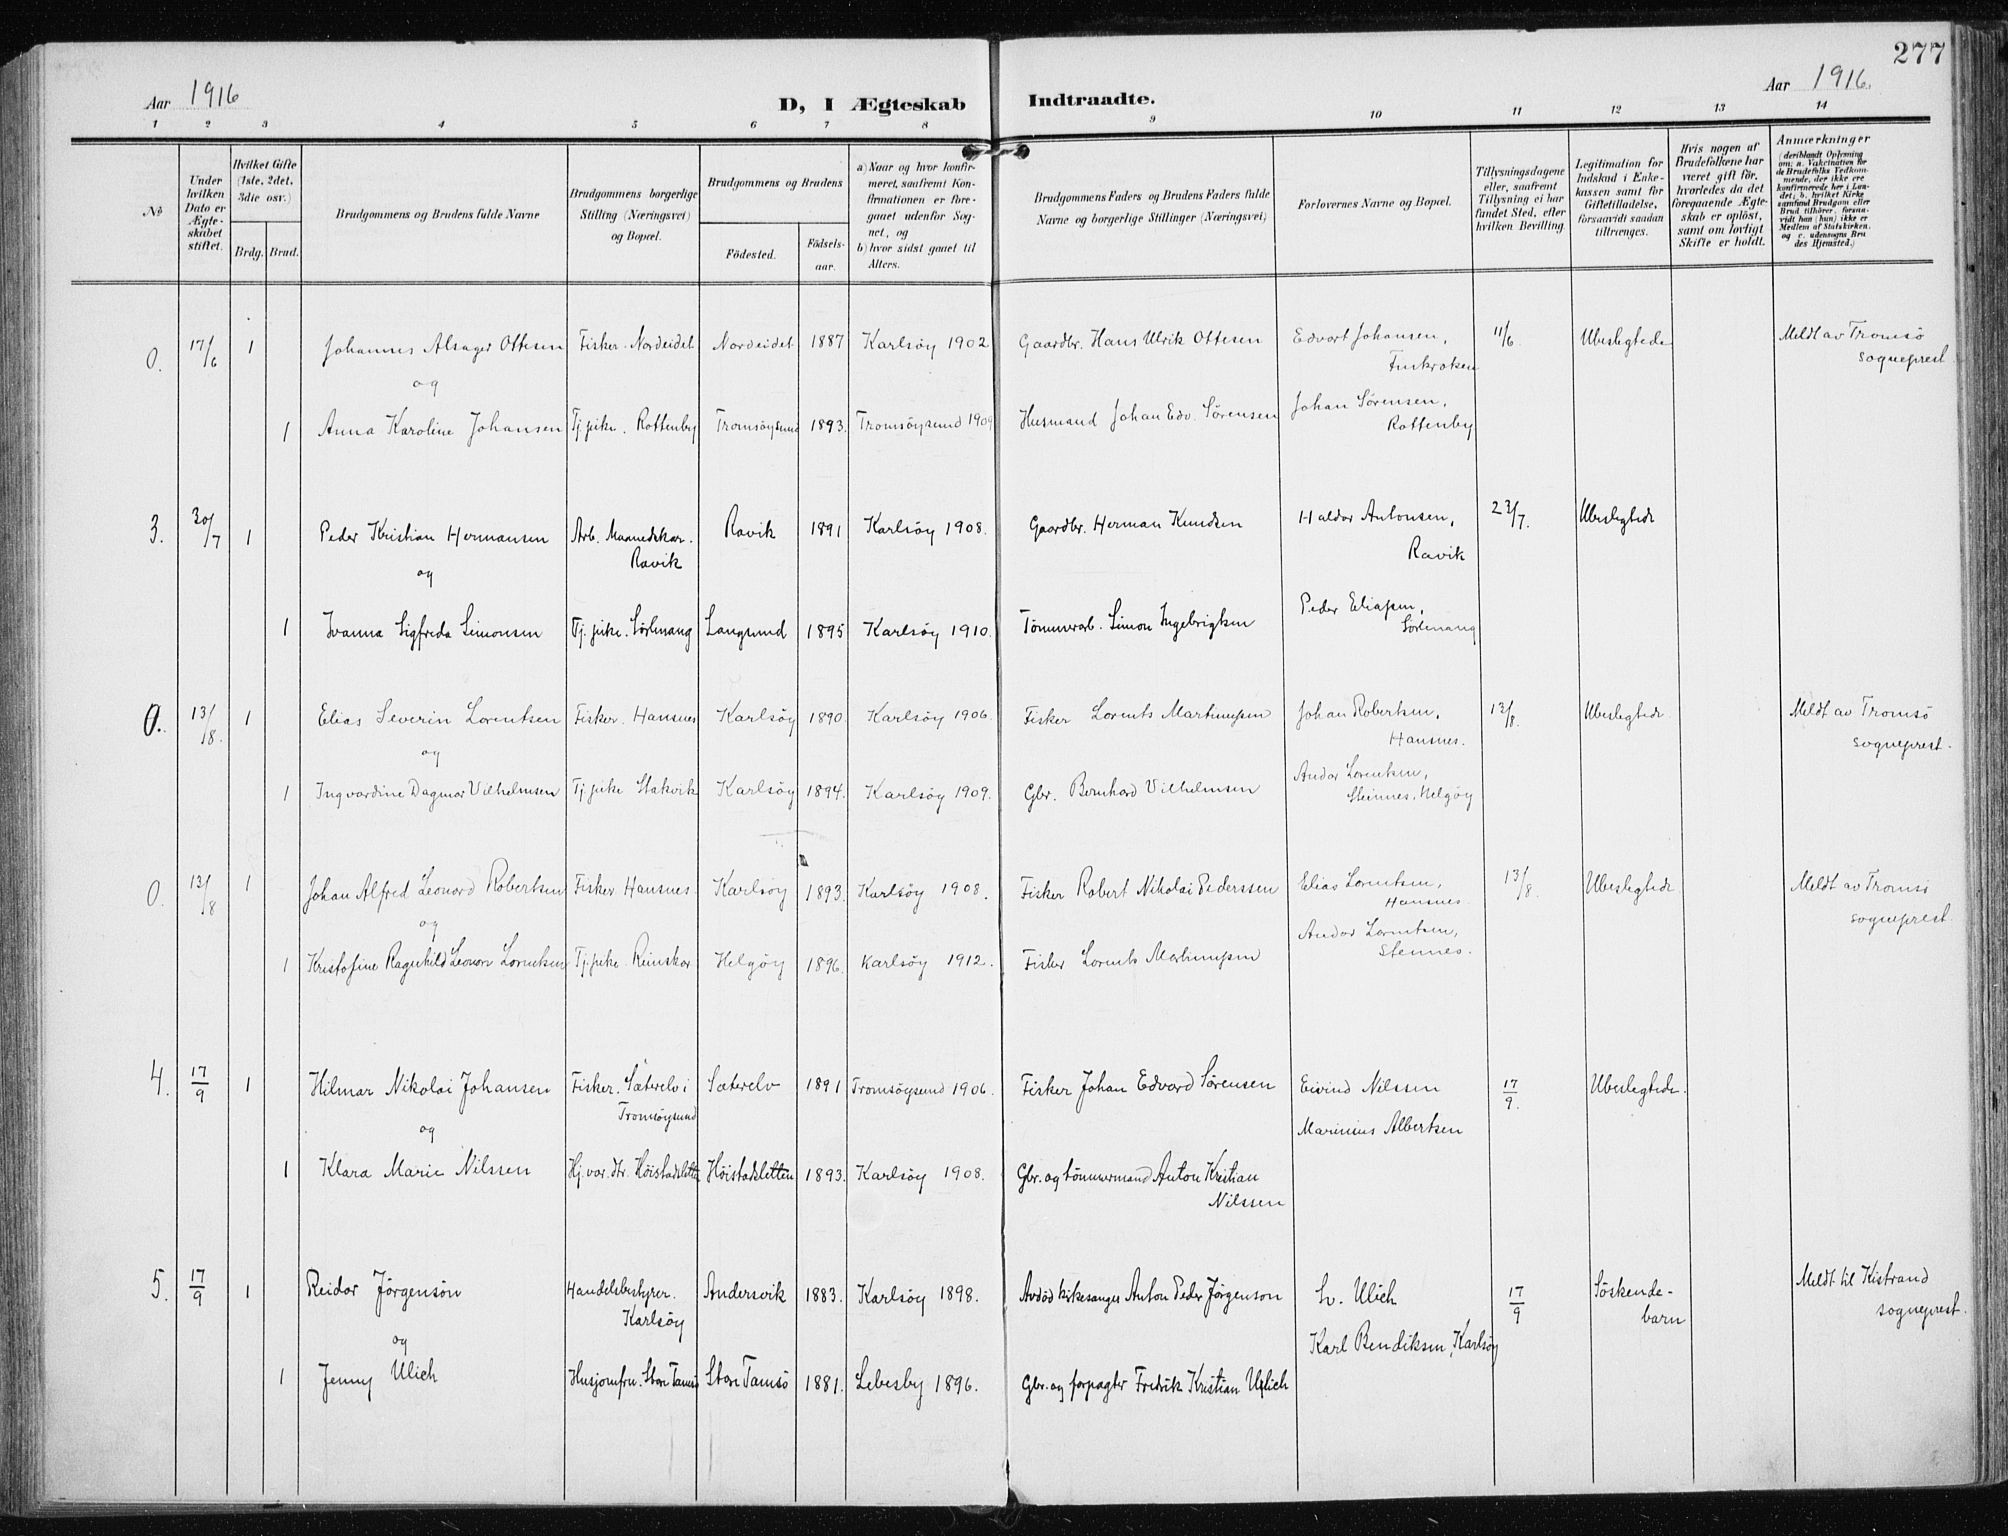 277
Aar 1916
D, I Ægteskab Indtraadte.
Aar 1916.
1 2 3 4 5 6 7 8 9 10 11 12 13 14
No
Under hvilken Dato er Ægteskabet stiftet.
Hvilket Gifte (1ste, 2det, 3die osv.)
Brdg. Brud.
Brudgommens og Brudens fulde Navne
Brudgommens borgerlige Stilling (Næringsvei) og Bopæl.
Brudgommens og Brudens
Fødested.
Fødselsaar.
a) Naar og hvor konfirmeret, saafremt Konfirmationen er foregaaet udenfor Sognet, og
b) hvor sidst gaaet til Alters.
Brudgommens Faders og Brudens Faders fulde Navne og borgerlige Stillinger (Næringsvei)
Forlovernes Navne og Bopæl.
Tillysningsdagene eller, saafremt Tillysning ei har fundet Sted, efter hvilken Bevilling.
Legitimation for Indskud i Enkekassen samt for Giftetilladelse, forsaavidt saadan tiltrænges.
Hvis nogen af Brudefolkene har været gift før, hvorledes da det foregaaende Ægteskab er opløst, samt om lovligt Skifte er holdt.
Anmærkninger
(deriblandt Oplysning om: a. Vakcination for de Brudefolks Vedkommende, der ikke ere konfirmerede her i Landet; b. hvilket Kirkesamfund Brudgom eller Brud tilhører, forsaavidt han (hun) ikke er Medlem af Statskirken, og c. udensogns Brudes Hjemsted.)
0. 17/6 1 Johannes Alsager Ottesen Fisker. Nordeidet Nordeidet 1887 Karlsöy 1902 Gaardbr. Hans Ulrik Ottesen Edvart Johansen, 11/6 Ubeslegtede Meldt av Tromsö
Finkroken sogneprest
og
1 Anna Karoline Johansen Tj.pike. Rottenby Tromsöysund 1893. Tromsöysund 1909 Husmand Johan Edv. Sörensen Johan Sörensen,
Rottenby
3. 30/7 1 Peder Kristian Hermansen Arb. Maanedskar. Ravik 1891 Karlsöy 1908. Gaardbr. Herman Knudsen Haldor Antonsen, 23/7. Ubeslegtede
Ravik Ravik
og
1 Ivanna Sigfrida Simonsen Tj.pike. Sörlenang Langsund 1895 Karlsöy 1910. Tömmerarb. Simon Ingebrigtsen Peder Eliassen,
Sörlenang
0. 13/8. 1 Elias Severin Lorentsen Fisker. Hansnes Karlsöy 1890. Karlsöy 1906. Fisker Lorents Martinussen Johan Robertsen, 13/8. Ubeslegtede Meldt av Tromsö
Hansnes. sogneprest.
og
1 Ingvardine Dagmar Vilhelmsen Tj.pike Stakvik Karlsöy 1894. Karlsöy 1909. Gbr. Bernhard Vilhelmsen Andor Lorentsen,
Steinnes, Helgöy
0. 13/8 1 Johan Alfred Leonard Robertsen Fisker Hansnes Karlsöy 1893. Karlsöy 1908. Fisker Robert Nikolai Pederssen Elias Lorentsen, 13/8. Ubeslegtede Meldt av Tromsö
Hansnes. sogneprest.
og
1 Kristofine Ragnhild Leonor Lorentsen Tj.pike Reinskar Helgöy 1896. Karlsöy 1912. Fisker Lorents Martinussen Andor Lorentsen,
Stennes.
4. 17/9 1 Hilmar Nikolai Johansen Fisker. Sæterelv i Sæterelv 1891 Tromsöysund 1906. Fisker Johan Edvard Sörensen Eivind Nilssen 17/9. Ubeslegtede.
Tromsöysund Marinius Albertsen
og
1 Klara Marie Nilssen Hj.vær. dtr. Höistadsletten Höistadsletten 1893. Karlsöy 1908. Gbr. og tömmermand Anton Kristian
Nilssen
5. 17/9 1 Reidar Jörgensön Handelsbestyrer. Andersvik 1883. Karlsöy 1898. Avdöd kirkesanger Anton Peder Jörgenson Ulich 17/9 Söskende- Meldt til Kistrand
Karlsöy Karl Bendiksen, Karlsöy barn sogneprest.
og
1 Jenny Ulich Husjomfru. Store Tamsö Store Tamsö 1881. Lebesby 1896. Gbr. og forpagter Fredrik Kristian Ulich